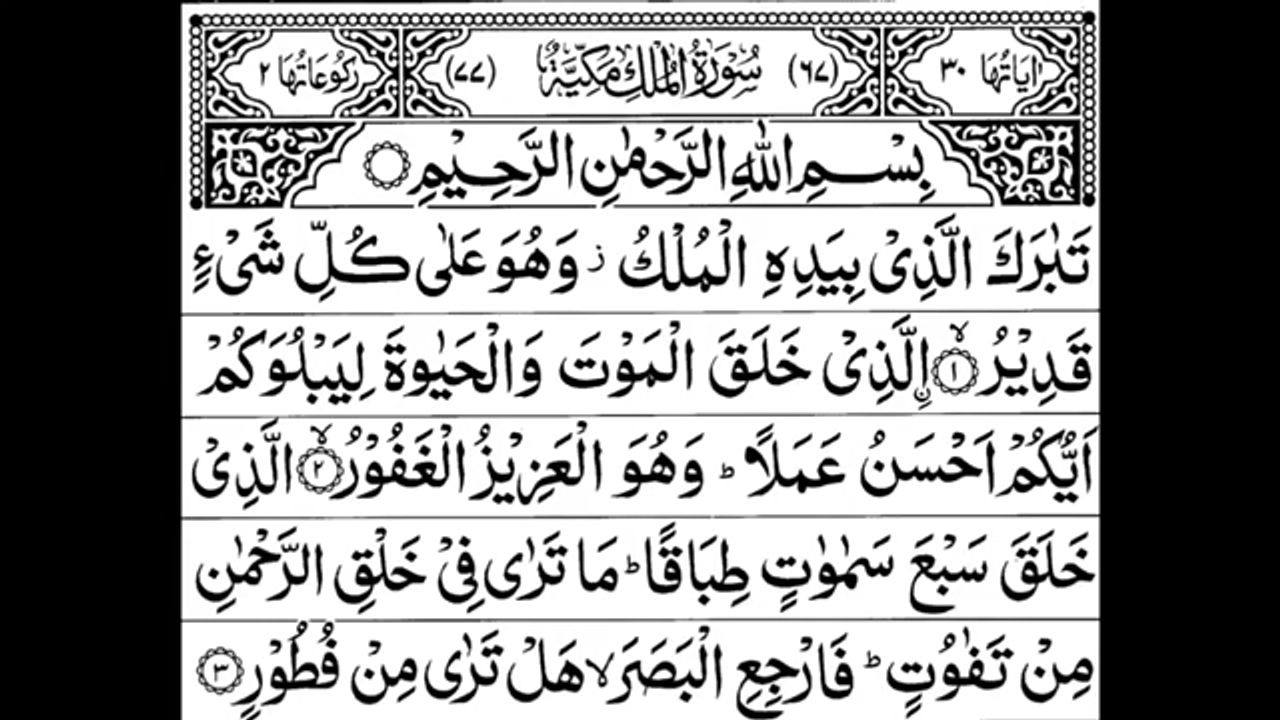 اٰيَاتُهَا ٣٠ (٦٧) سُوْرَةُ الْمُلْكِ مَكِّيَّةٌ (٧٧) رُكُوْعَاتُهَا ٢
بِسْمِ اللّٰهِ الرَّحْمٰنِ الرَّحِيْمِ ۝
تَبٰرَكَ الَّذِىْ بِيَدِهِ الْمُلْكُ ز وَهُوَ عَلٰى كُلِّ شَىْءٍ
قَدِيْرُ ۙ﴿١﴾ نِۨالَّذِىْ خَلَقَ الْمَوْتَ وَالْحَيٰوةَ لِيَبْلُوَكُمْ
اَيُّكُمْ اَحْسَنُ عَمَلًا ؕ وَهُوَ الْعَزِيْزُ الْغَفُوْرُ ۙ﴿٢﴾ الَّذِىْ
خَلَقَ سَبْعَ سَمٰوٰتٍ طِبَاقًا ؕ مَا تَرٰى فِىْ خَلْقِ الرَّحْمٰنِ
مِنْ تَفٰوُتٍ ؕ فَارْجِعِ الْبَصَرَ ۙ هَلْ تَرٰى مِنْ فُطُوْرٍ ﴿٣﴾